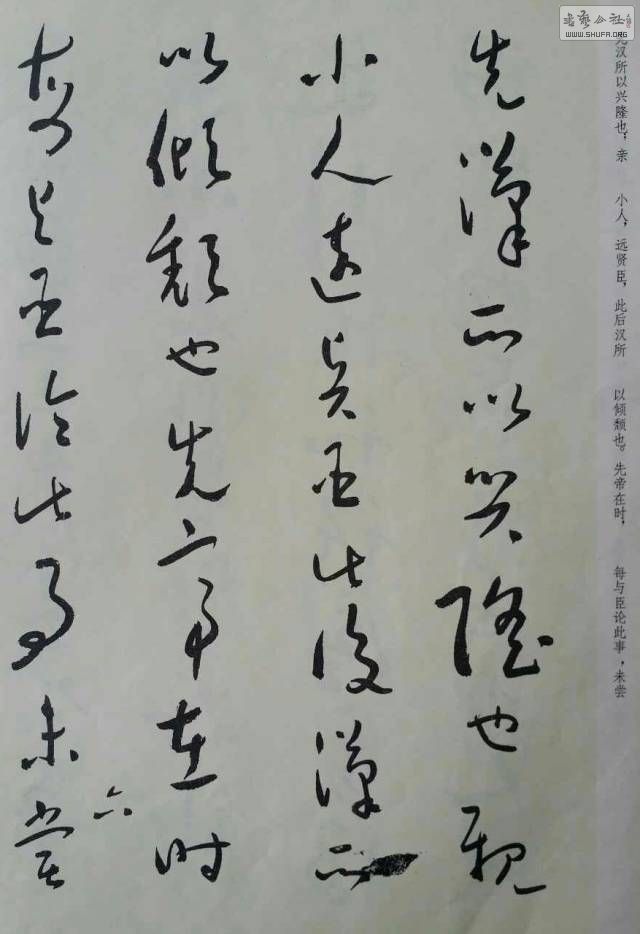 先漢所以興隆也親
小人遠賢臣此後漢所
以傾頹也先帝在时
每與臣論此事未嘗
六
先汉所以兴隆也；亲
小人，远贤臣，此后汉所
以倾颓也。先帝在时，
每与臣论此事，未尝
书艺公社
WWW.SHUFA.ORG